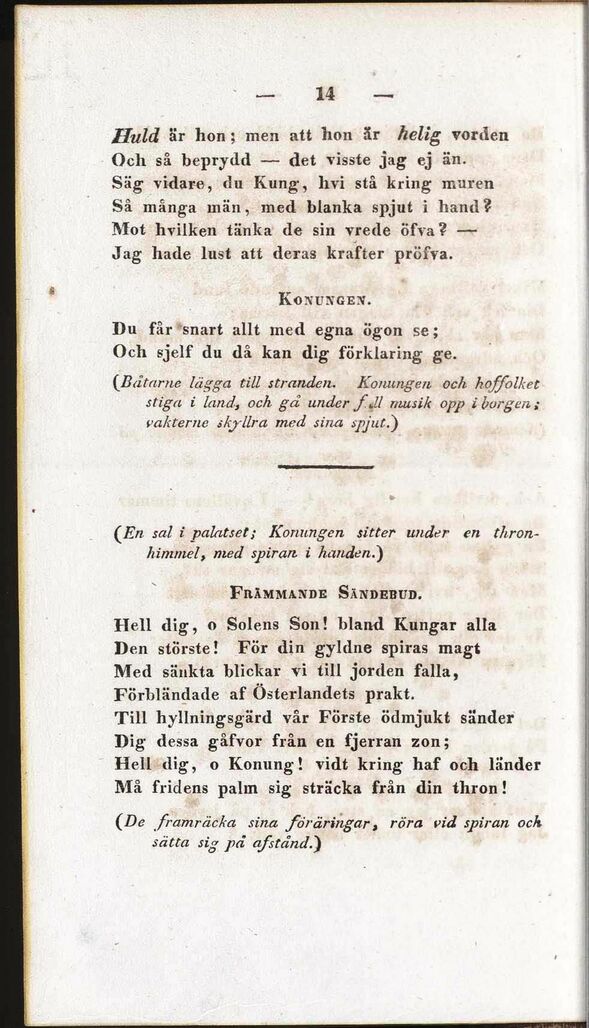 — 14 —
Huld är hon; men att hon är helig vorden
Och så beprydd — det visste jag ej än.
Säg vidare, du Kung, hvi stå kring muren
Så många män, med blanka spjut i hand?
Mot hvilken tänka de sin vrede öfva? —
Jag hade lust att deras krafter pröfva.
KONUNGEN.
Du får snart allt med egna ögon se;
Och sjelf du då kan dig förklaring ge.
(Båtarne lägga till stranden. Konungen och hoffolket
stiga i land, och gå under full musik opp i borgen;
vakterne skyllra med sina spjut.)
(En sal i palatset; Konungen sitter under en thron-
himmel, med spiran i handen.)
FRÄMMANDE SÄNDEBUD.
Hell dig, o Solens Son! bland Kungar alla
Den störste! För din gyldne spiras magt
Med sänkta blickar vi till jorden falla,
Förbländade af Österlandets prakt.
Till hyllningsgärd vår Förste ödmjukt sänder
Dig dessa gåfvor från en fjerran zon;
Hell dig, o Konung! vidt kring haf och länder
Må fridens palm sig sträcka från din thron!
(De framräcka sina föräringar, röra vid spiran och
sätta sig på afstånd.)